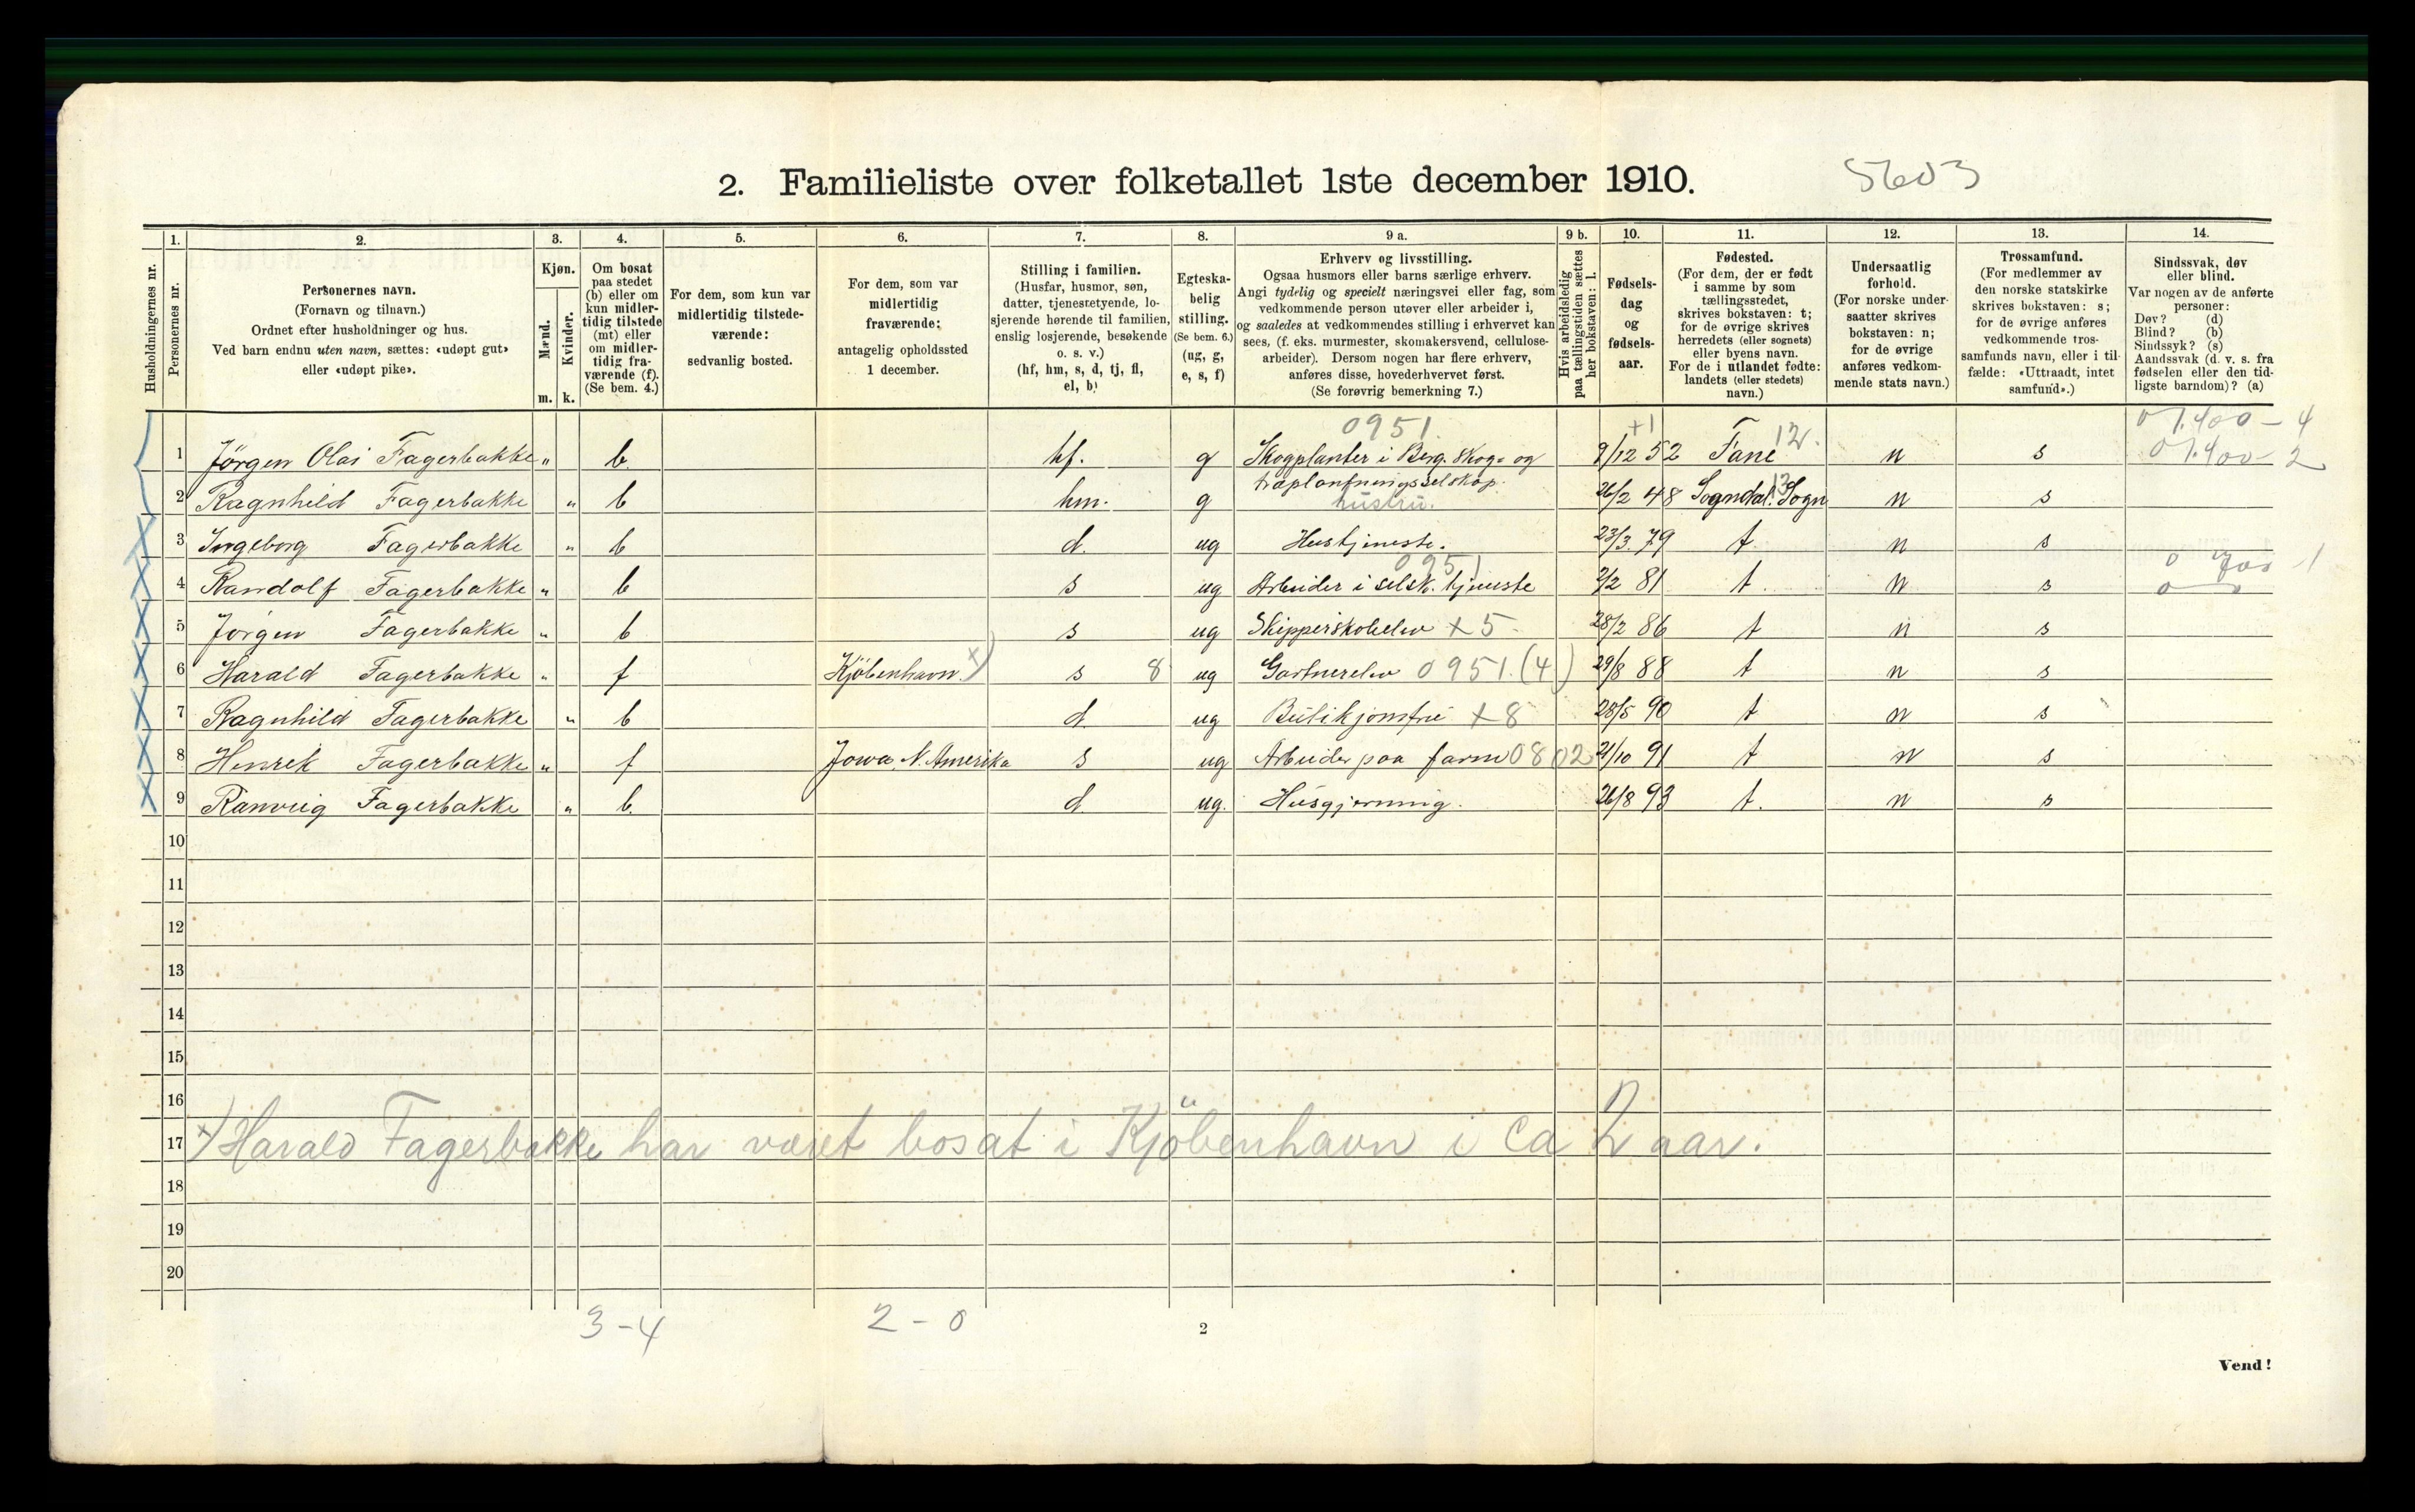 2. Familieliste over folketallet 1ste december 1910. 5603
1. 2. 3. 4. 5. 6. 7. 8. 9 a. 9 b. 10. 11. 12. 13. 14.
Husholdningernes nr.
Personernes nr.
Personernes navn.
(Fornavn og tilnavn.)
Ordnet efter husholdninger og hus.
Ved barn endnu uten navn, sættes: «udøpt gut»
eller «udøpt pike».
Kjøn.
Mænd.
Kvinder.
m. k.
Om bosat
paa stedet
(b) eller om
kun midler-
tidig tilstede
(mt) eller
om midler-
tidig fra-
værende (f).
(Se bem. 4.)
For dem, som kun var
midlertidig tilstede-
værende:
sedvanlig bosted.
For dem, som var
midlertidig
fraværende:
antagelig opholdssted
1 december.
Stilling i familien.
(Husfar, husmor, søn,
datter, tjenestetyende, lo-
sjerende hørende til familien,
enslig losjerende, besøkende
o. s. v.)
(hf, hm, s, d, tj, fl,
el, b)
Egteska-
belig
stilling.
(Se bem. 6.)
(ug, g,
e, s, f)
Erhverv og livsstilling.
Ogsaa husmors eller barns særlige erhverv.
Angi tydelig og specielt næringsvei eller fag, som
vedkommende person utøver eller arbeider i,
og saaledes at vedkommendes stilling i erhvervet kan
sees, (f. eks. murmester, skomakersvend, cellulose-
arbeider). Dersom nogen har flere erhverv,
anføres disse, hovederhvervet først.
(Se forøvrig bemerkning 7.)
Hvis arbeidsledig
paa tællingstiden sættes
her bokstaven: l.
Fødsels-
dag
og
fødsels-
aar.
Fødested.
(For dem, der er født
i samme by som
tællingsstedet,
skrives bokstaven: t;
for de øvrige skrives
herredets (eller sognets)
eller byens navn.
For de i utlandet fødte:
landets (eller stedets)
navn.)
Undersaatlig
forhold.
(For norske under-
saatter skrives
bokstaven: n;
for de øvrige
anføres vedkom-
mende stats navn.)
Trossamfund.
(For medlemmer av
den norske statskirke
skrives bokstaven: s;
for de øvrige anføres
vedkommende tros-
samfunds navn, eller i til-
fælde: «Uttraadt, intet
samfund».)
Sindssvak, døv
eller blind.
Var nogen av de anførte
personer:
Døv? (d)
Blind? (b)
Sindssyk? (s)
Aandssvak (d. v. s. fra
fødselen eller den tid-
ligste barndom)? (a)
0951 +1 12.
1 Jörgen Olai Fagerbakke " b hf. g Skogplanter i Berg. skog- og 9/12 52 Fane n s
træplantningsselskap.
2 Ragnhild Fagerbakke " b hm. g hustru. 26/2 48 Sogndal. Sogn 13 n s
3 Ingeborg Fagerbakke " b d. ug Hustjeneste. 23/3. 79 t n s
0951
4 Randolf Fagerbakke " b s ug Arbeider i selsk. tjeneste 2/2 81 t. n s
5 Jörgen Fagerbakke " b s ug Skipperskoleelev +5 28/2 86 t n s
6 Harald Fagerbakke " f Kjöbenhavn. +) s 8 ug Gartnerelev 0951. (4) 29/8 88 t n s
7 Ragnhild Fagerbakke " b d. ug Butikjomfru +8 28/5 90 t n s
8 Henrik Fagerbakke " f Jowa, N. Amerika s ug Arbeider paa farm 0802 21/10 91 t n s
9 Ranveig Fagerbakke " b. d. ug. Husgjerning. 26/8 93 t. n s
10
11
12
13
14
15
16
17 +) Harald Fagerbakke har været bosat i Kjöbenhavn i ca 2 aar.
18
19
20
3-4 2-0
2
Vend!